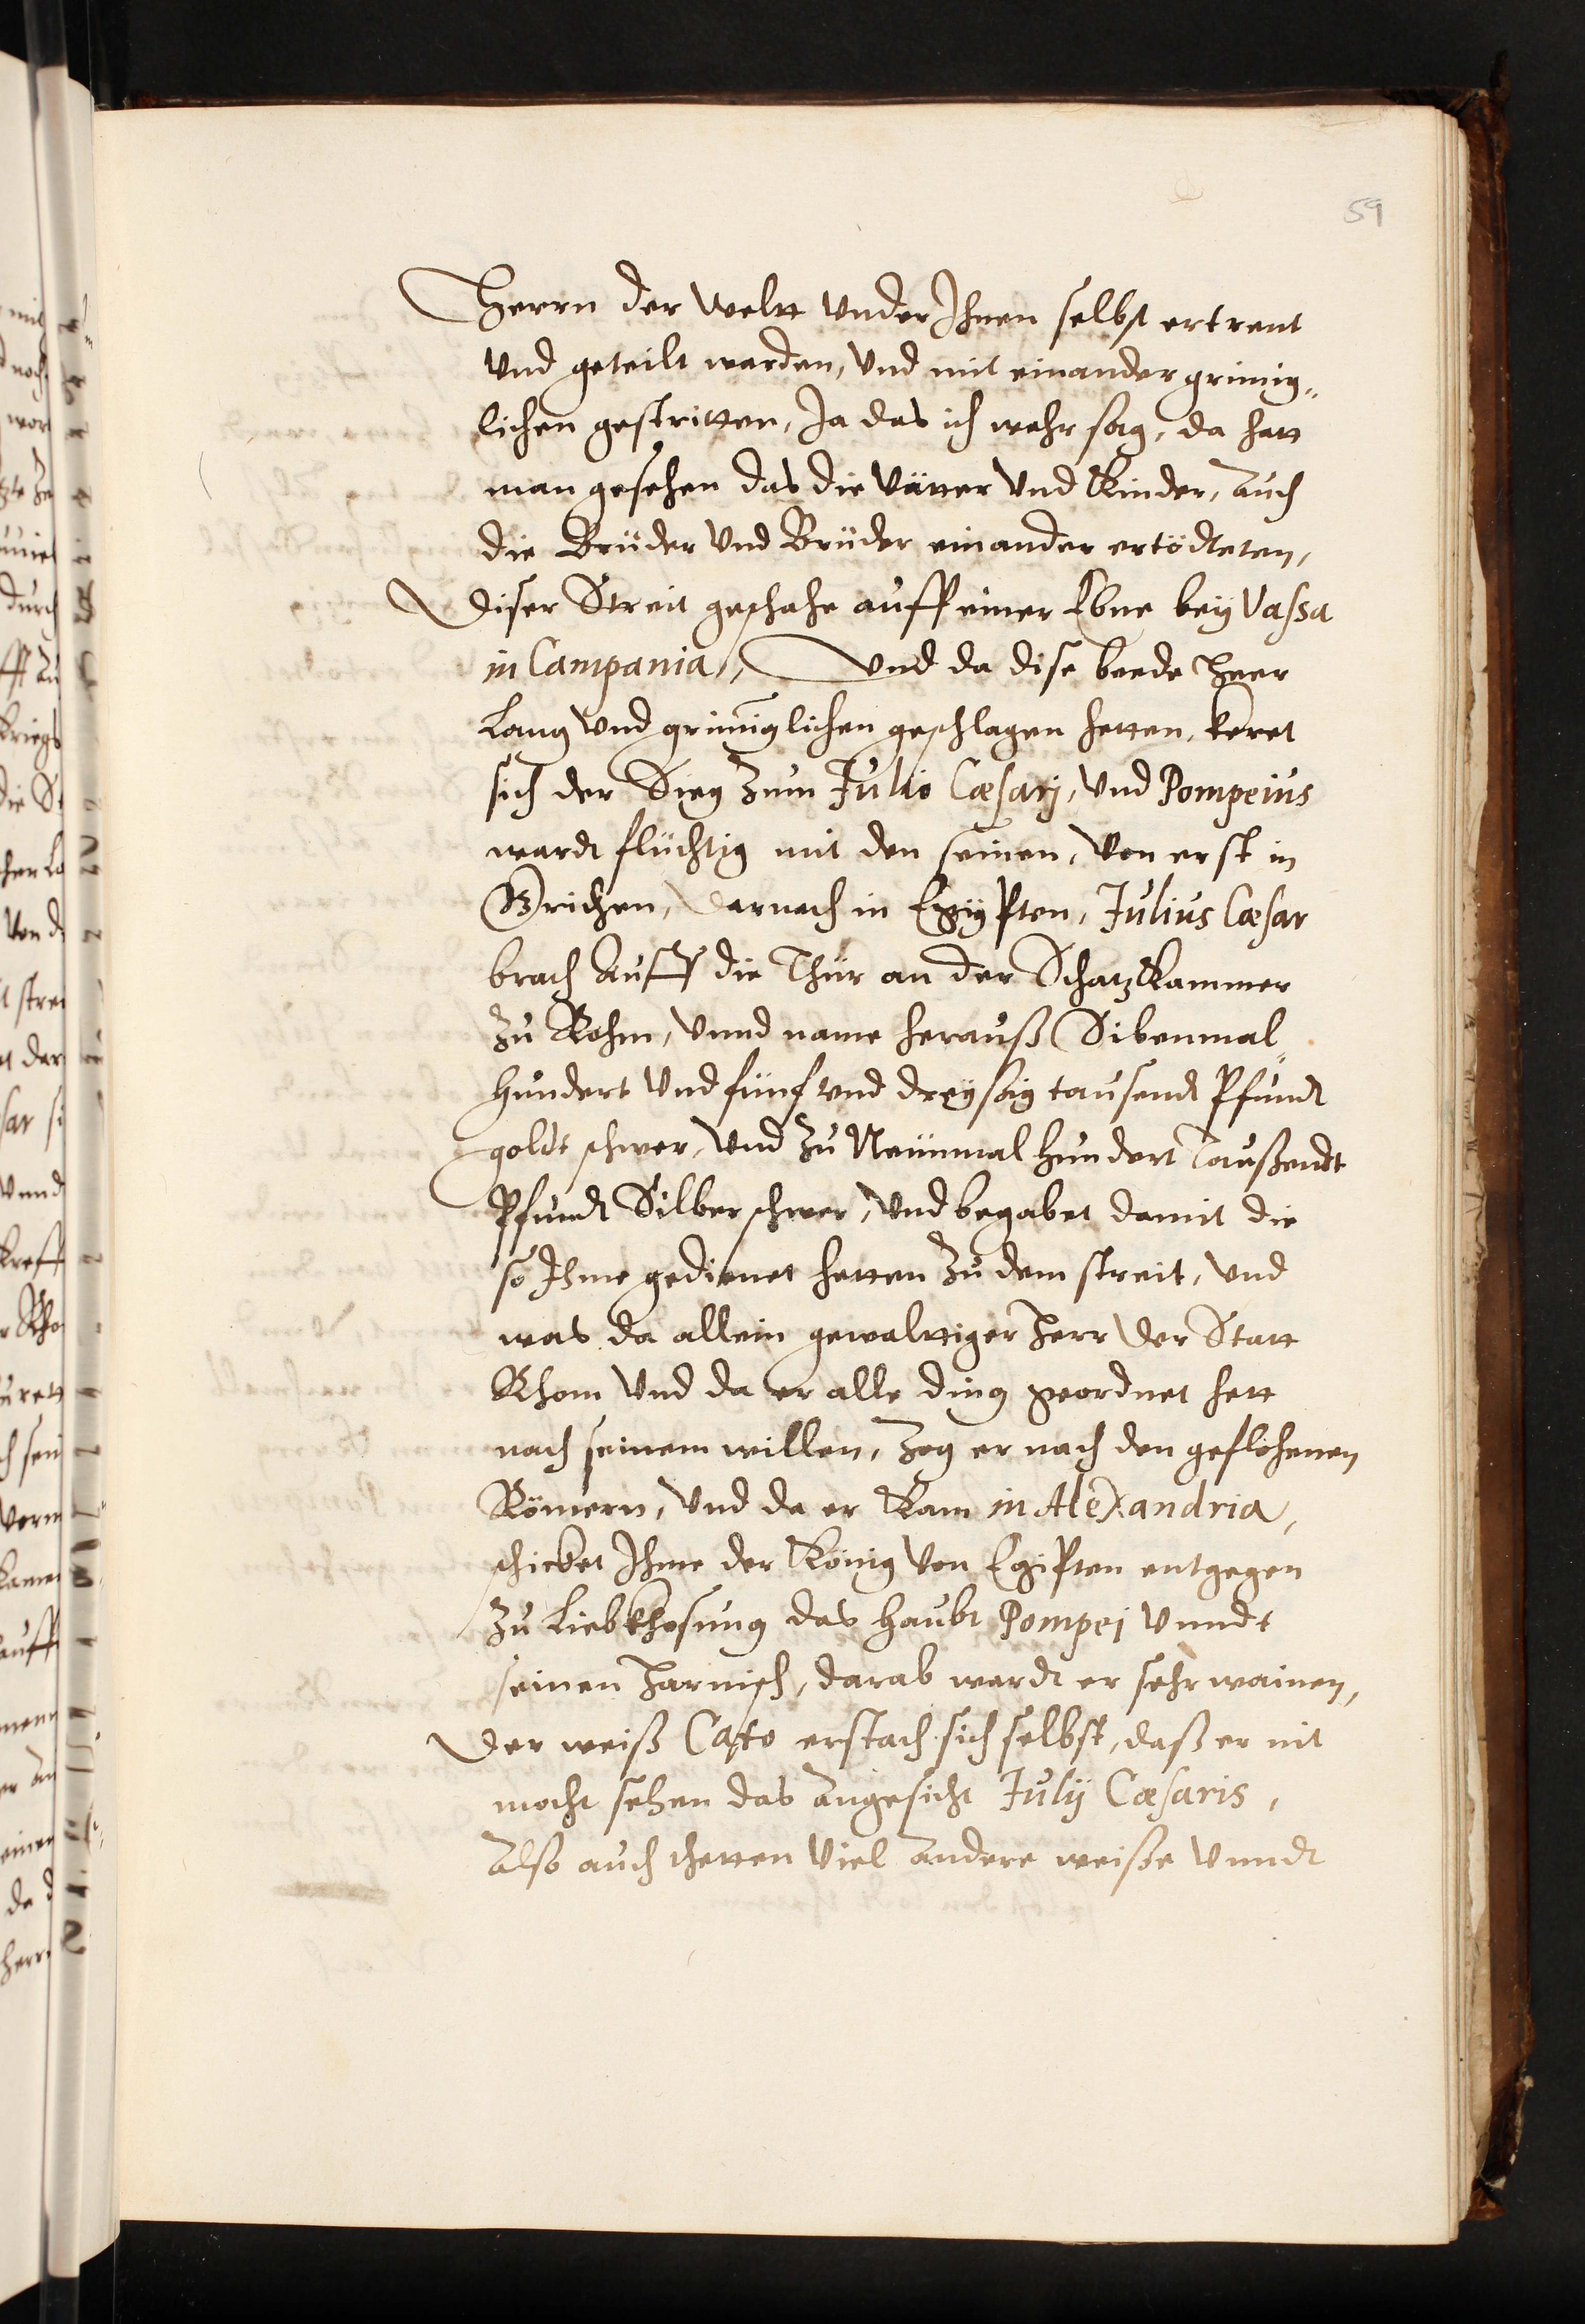 59
Herrn der weltt vnder Ihnen selbst ertrent
vnd geteilt warden, vnd mit einander grimig„
lichen gestritten, Ja das ich wahr sag, da hatt
man gesehen das die Vätter vnd Kinder, auch
die Brüder vnd Brüder einander ertödteten,
Diser Streit geschahe auff einer Ebne beÿ Vassa
in Campania, Vnd da dise beede Heer
Lang vnd grimiglichen geschlagen hetten, keret
sich der Sieg zum Julio Cæsarj, vnd Pompeius
wardt flüchtig mit den seinen, von erst in
Grichen, Darnach in Egÿpten, Julius Cæsar
brach auff die Thür an der Schatzkammer
zu Rohm, vnnd name herauß Sibenmal„
hundert vnd fünf vnd dreÿssig tausendt Pfundt
goldt schwer, vnd zu Neünmal hundert Taußendt
Pfundt Silber schwer, vnd begabet damit die
so Ihme gedienet hetten zu dem streit, vnd
was da allein gewalttiger Herr der Statt
Rhom vnd da er alle ding geordnet hett
nach seinem willen, zog er nach den geflohenen
Römern, vnd da er kam in Alexandria,
schicket Ihme der König von Egipten entgegen
zu Liebkhosung das Haubt Pompej vnndt
seinen Harnisch, darab wardt er sehr wainen,
Der weiß Cato erstach sich selbst, daß er nit
mocht sehen das angesicht Julÿ Cæsaris,
Also auch thetten viel andere weiße vnndt